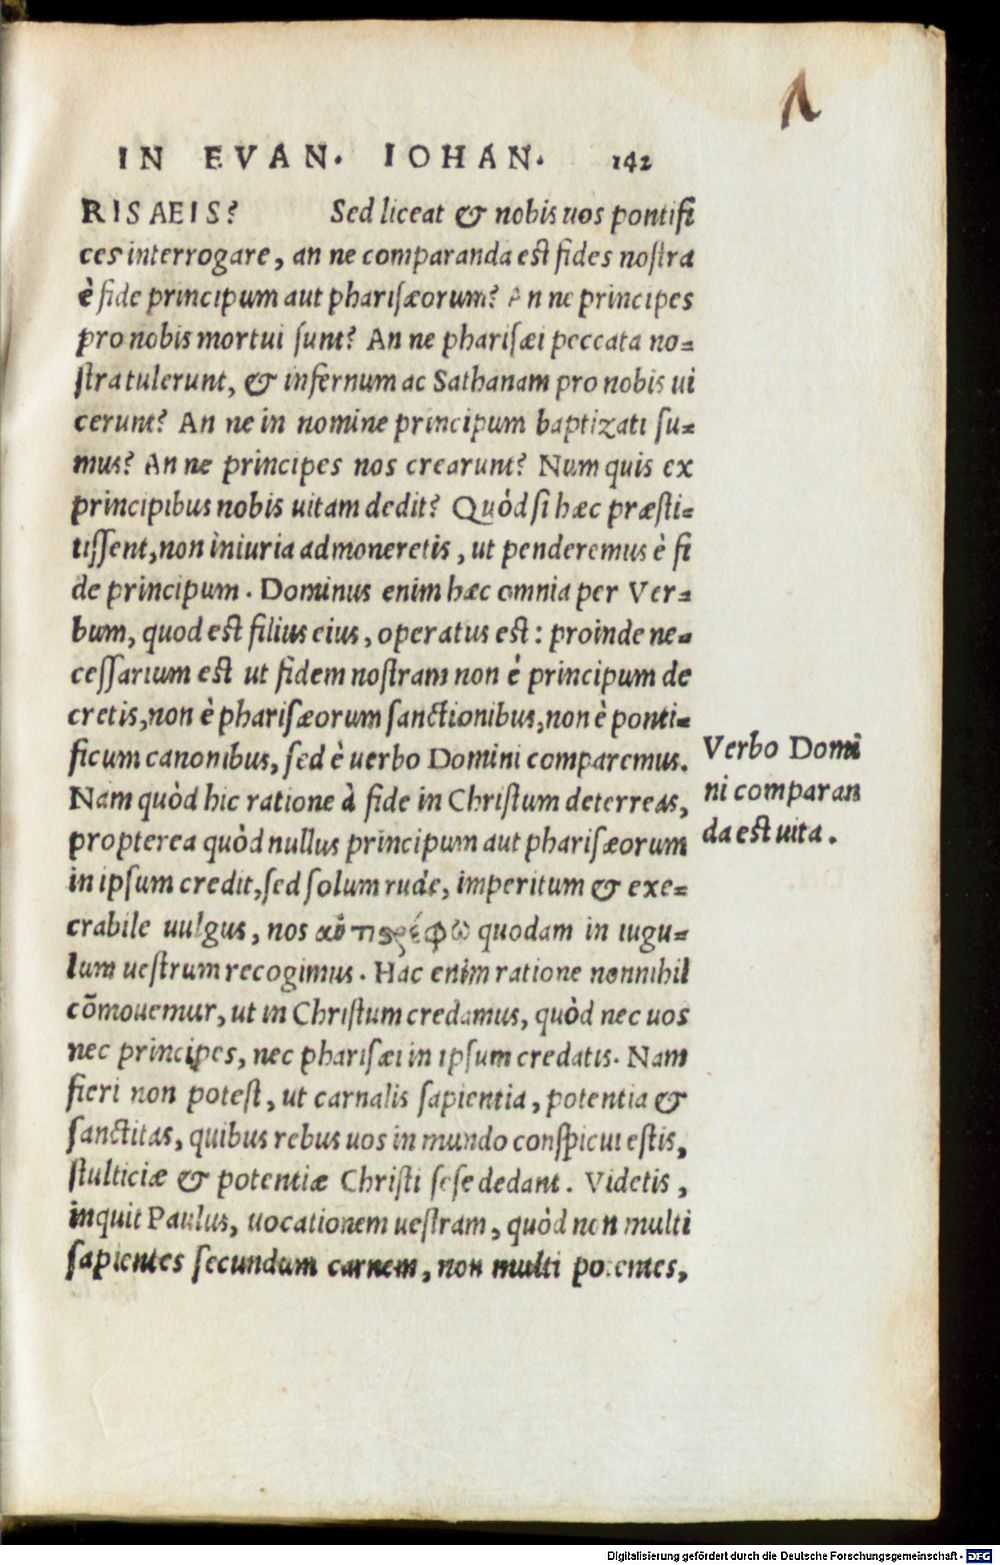 IN EVAN. IOHAN. 142
RISAEIS? Sed liceat & nobis uos pontifi
ces interrogare, an ne comparanda est fides nostra
è fide principum aut pharisæorum? An ne principes
pro nobis mortui sunt? An ne pharisæi peccata no=
stra tulerunt, & infernum ac Sathanam pro nobis ui
cerunt? An ne in nomine principum baptizati su=
mus? An ne principes nos crearunt? Num quis ex
principibus nobis uitam dedit? Quòd si hæc præsti=
tissent, non iniuria admoneretis, ut penderemus è fi
de principum. Dominus enim hæc omnia per Ver=
bum, quod est filius eius, operatus est: proinde ne=
cessarium est ut fidem nostram non è principum de
cretis, non è pharisæorum sanctionibus, non è ponti=
ficum canonibus, sed è uerbo Domini comparemus.
Nam quòd hic ratione à fide in Christum deterreas,
propterea quòd nullus principum aut pharisæorum
in ipsum credit, sed solum rude, imperitum & exe=
crabile uulgus, nos ἀντιστρέφω quodam in iugu=
lum uestrum recogimus. Hac enim ratione nonnihil
cõmouemur, ut in Christum credamus, quòd nec uos
nec principes, nec pharisæi in ipsum credatis. Nam
fieri non potest, ut carnalis sapientia, potentia &
sanctitas, quibus rebus uos in mundo conspicui estis,
stulticiæ & potentiæ Christi sese dedant. Videtis,
inquit Paulus, uocationem uestram, quòd non multi
sapientes secundum carnem, non multi potentes,
Verbo Domi
ni comparan
da est uita.
Digitalisierung gefördert durch die Deutsche Forschungsgemeinschaft - DFG